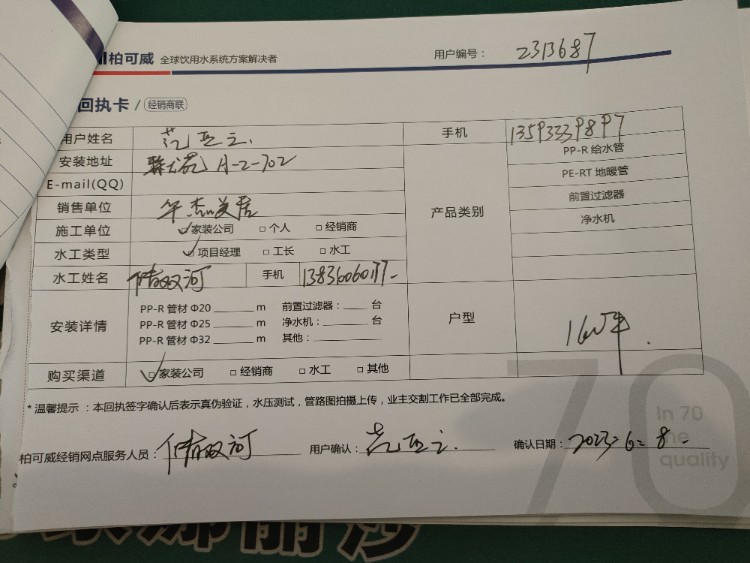 柏可威 全球饮用水系统方案解决者 用户编号： 2313687
回执卡 / 经销商联
用户姓名 手机 13593339897
安装地址 A-2-702 PP-R 给水管
E-mail(QQ) PE-RT 地暖管
销售单位 华杰美居 产品类别 前置过滤器
施工单位 ✓家装公司 □ 个人 □ 经销商 净水机
水工类型 ✓项目经理 □ 工长 □ 水工
水工姓名 双河 手机 13836060177
安装详情 PP-R 管材 Φ20 m 前置过滤器： 台
PP-R 管材 Φ25 m 净水机： 台 户型
PP-R 管材 Φ32 m 其他：
购买渠道 ✓家装公司 □ 经销商 □ 水工 □ 其他
* 温馨提示 ：本回执签字确认后表示真伪验证，水压测试，管路图拍摄上传，业主交割工作已全部完成。
柏可威经销网点服务人员： 双河 用户确认： 确认日期： 2023.6.8
70
In 70
the
quality